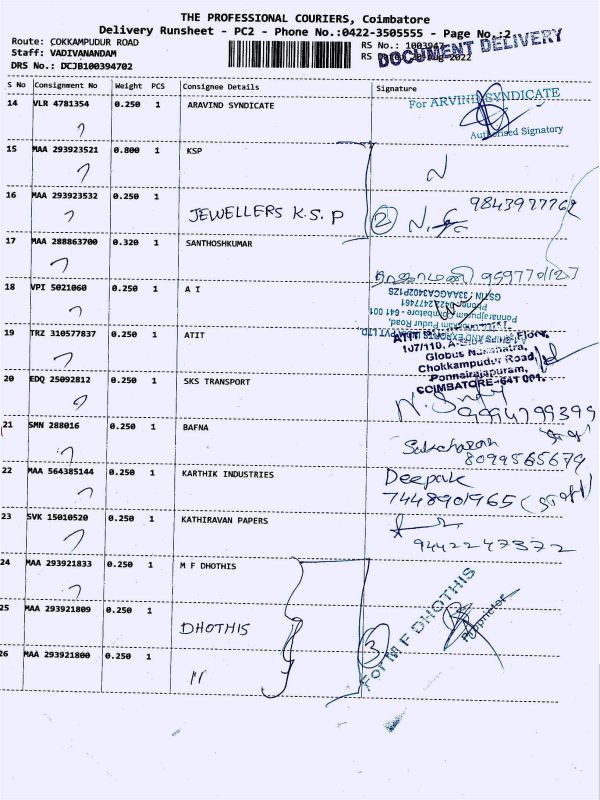 THE PROFESSIONAL COURIERS, Coimbatore
Delivery Runsheet - PC2 - Phone No.:0422-3505555 - Page No.:2
Route: COKKAMPUDUR ROAD
RS No.: 1003947
DOCUMENT DELIVERY
Staff: VADIVANANDAM
DRS No.: DCJB100394702
S No Consignment No Weight PCS Consignee Details Signature
14 VLR 4781354 0.250 1 ARAVIND SYNDICATE
For ARVIND SYNDICATE
Authorised Signatory
15 MAA 293923521 0.800 1 KSP
16 MAA 293923532 0.250 1
JEWELLERS K.S.P
2
9843977762
17 MAA 288863700 0.320 1 SANTHOSHKUMAR
18 VPI 5021060 0.250 1 A I
GSTIN 33AAGCA3402P1ZS
19 TRZ 310577837 0.250 1 ATIT
Globus Nakshatra,
Chokkampudur Road,
Ponnairajapuram,
COIMBATORE-641 001.
20 EDQ 25092812 0.250 1 SKS TRANSPORT
9994799399
21 SMN 288016 0.250 1 BAFNA
8099565679
22 MAA 564385144 0.250 1 KARTHIK INDUSTRIES
Deepak
7448901965
23 SVK 15010520 0.250 1 KATHIRAVAN PAPERS
9442247372
24 MAA 293921833 0.250 1 M F DHOTHIS
25 MAA 293921809 0.250 1
DHOTHIS
3
For M F DHOTHIS
Proprietor
26 MAA 293921800 0.250 1
"